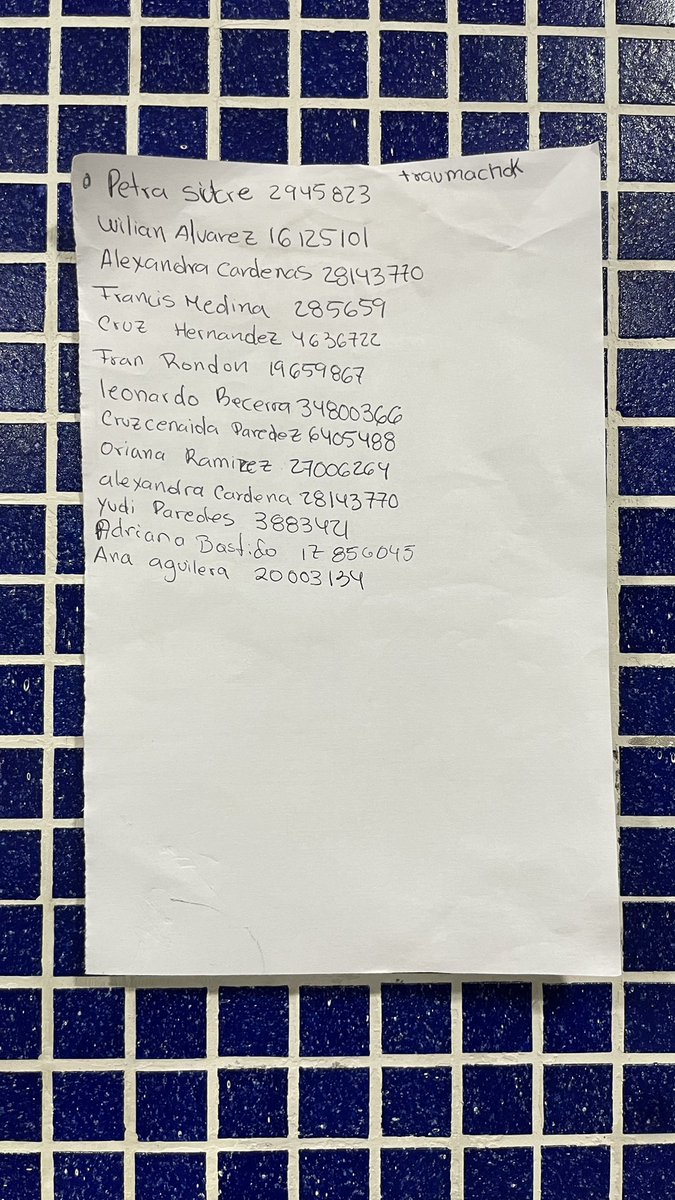 traumachok
Petra sucre 2945823
Wilian Alvarez 16125101
Alexandra Cardenas 28143770
Francis Medina 285659
Cruz Hernandez 4636722
Fran Rondon 19659867
leonardo Becerra 34800366
Cruzcenaida Paredez 6405488
Oriana Ramirez 27006264
alexandra Cardena 28143770
Yudi Paredes 3883421
Adriana Bastido 17856045
Ana aguilera 20003134